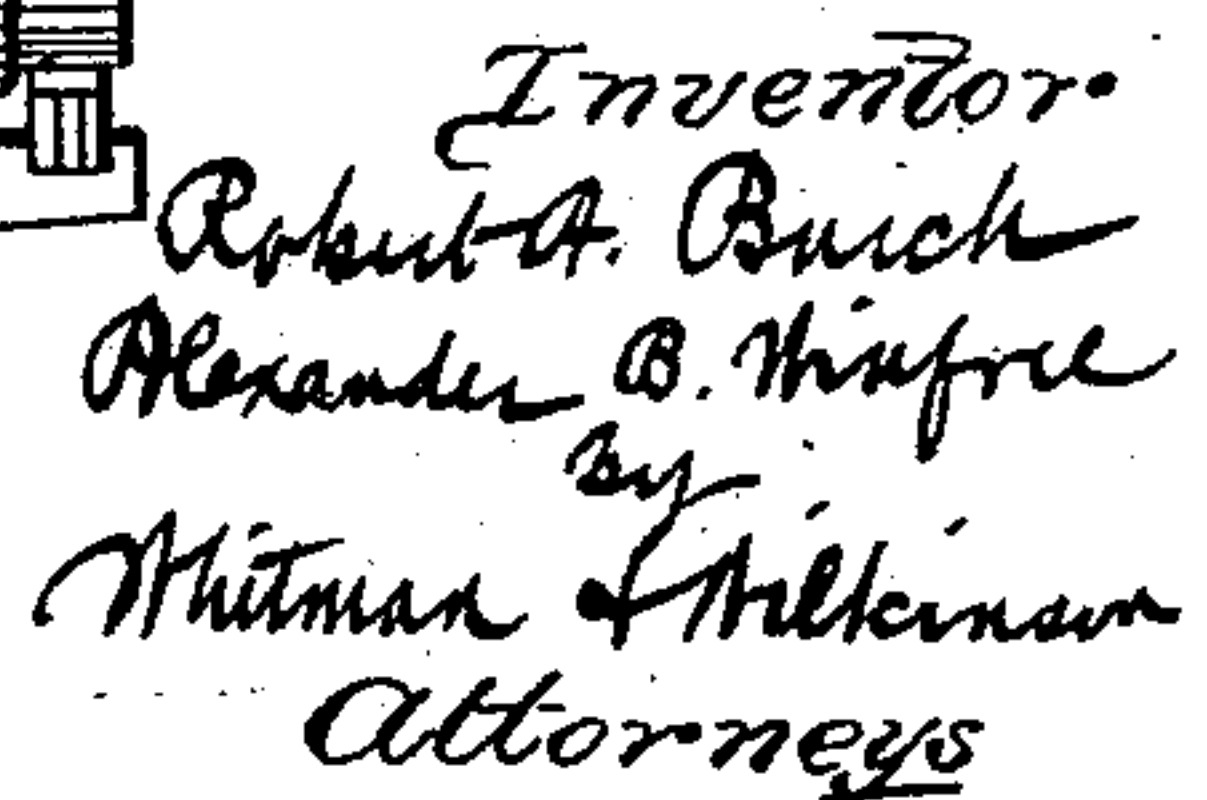 Inventor.
Robert A. Burch
Alexander B. Winfree
By
Whitman & Wilkinson
Attorneys